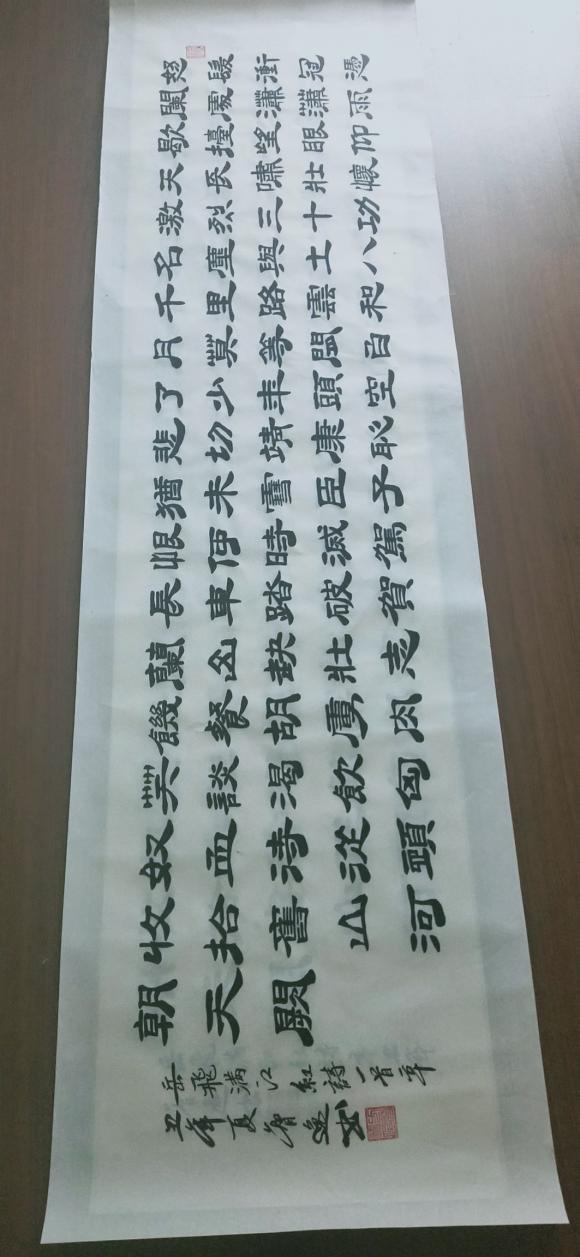 怒髮衝冠憑
闌處瀟瀟雨
歇擡望眼仰
天長嘯壯懷
激烈三十功
名塵與土八
千里路雲和
月莫等閑白
了少年頭空
悲切靖康恥
猶未雪臣子
恨何時滅駕
長車踏破賀
蘭山缺壯志
饑餐胡虜肉
笑談渴飲匈
奴血待從頭
收拾舊山河
朝天闕
岳飛满江紅詩一首辛
丑年夏